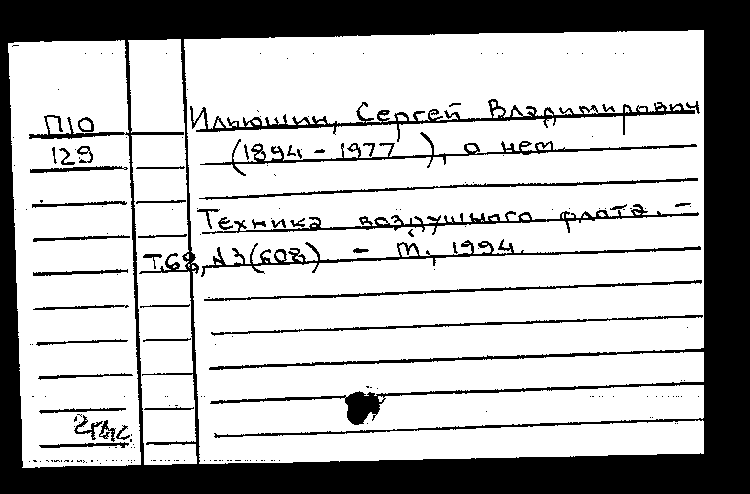 П10
129
Ильюшин, Сергей Владимирович
(1894 - 1977 ), о нем.
Техника воздушного флота. -
Т.68, №3(608) - М., 1994.